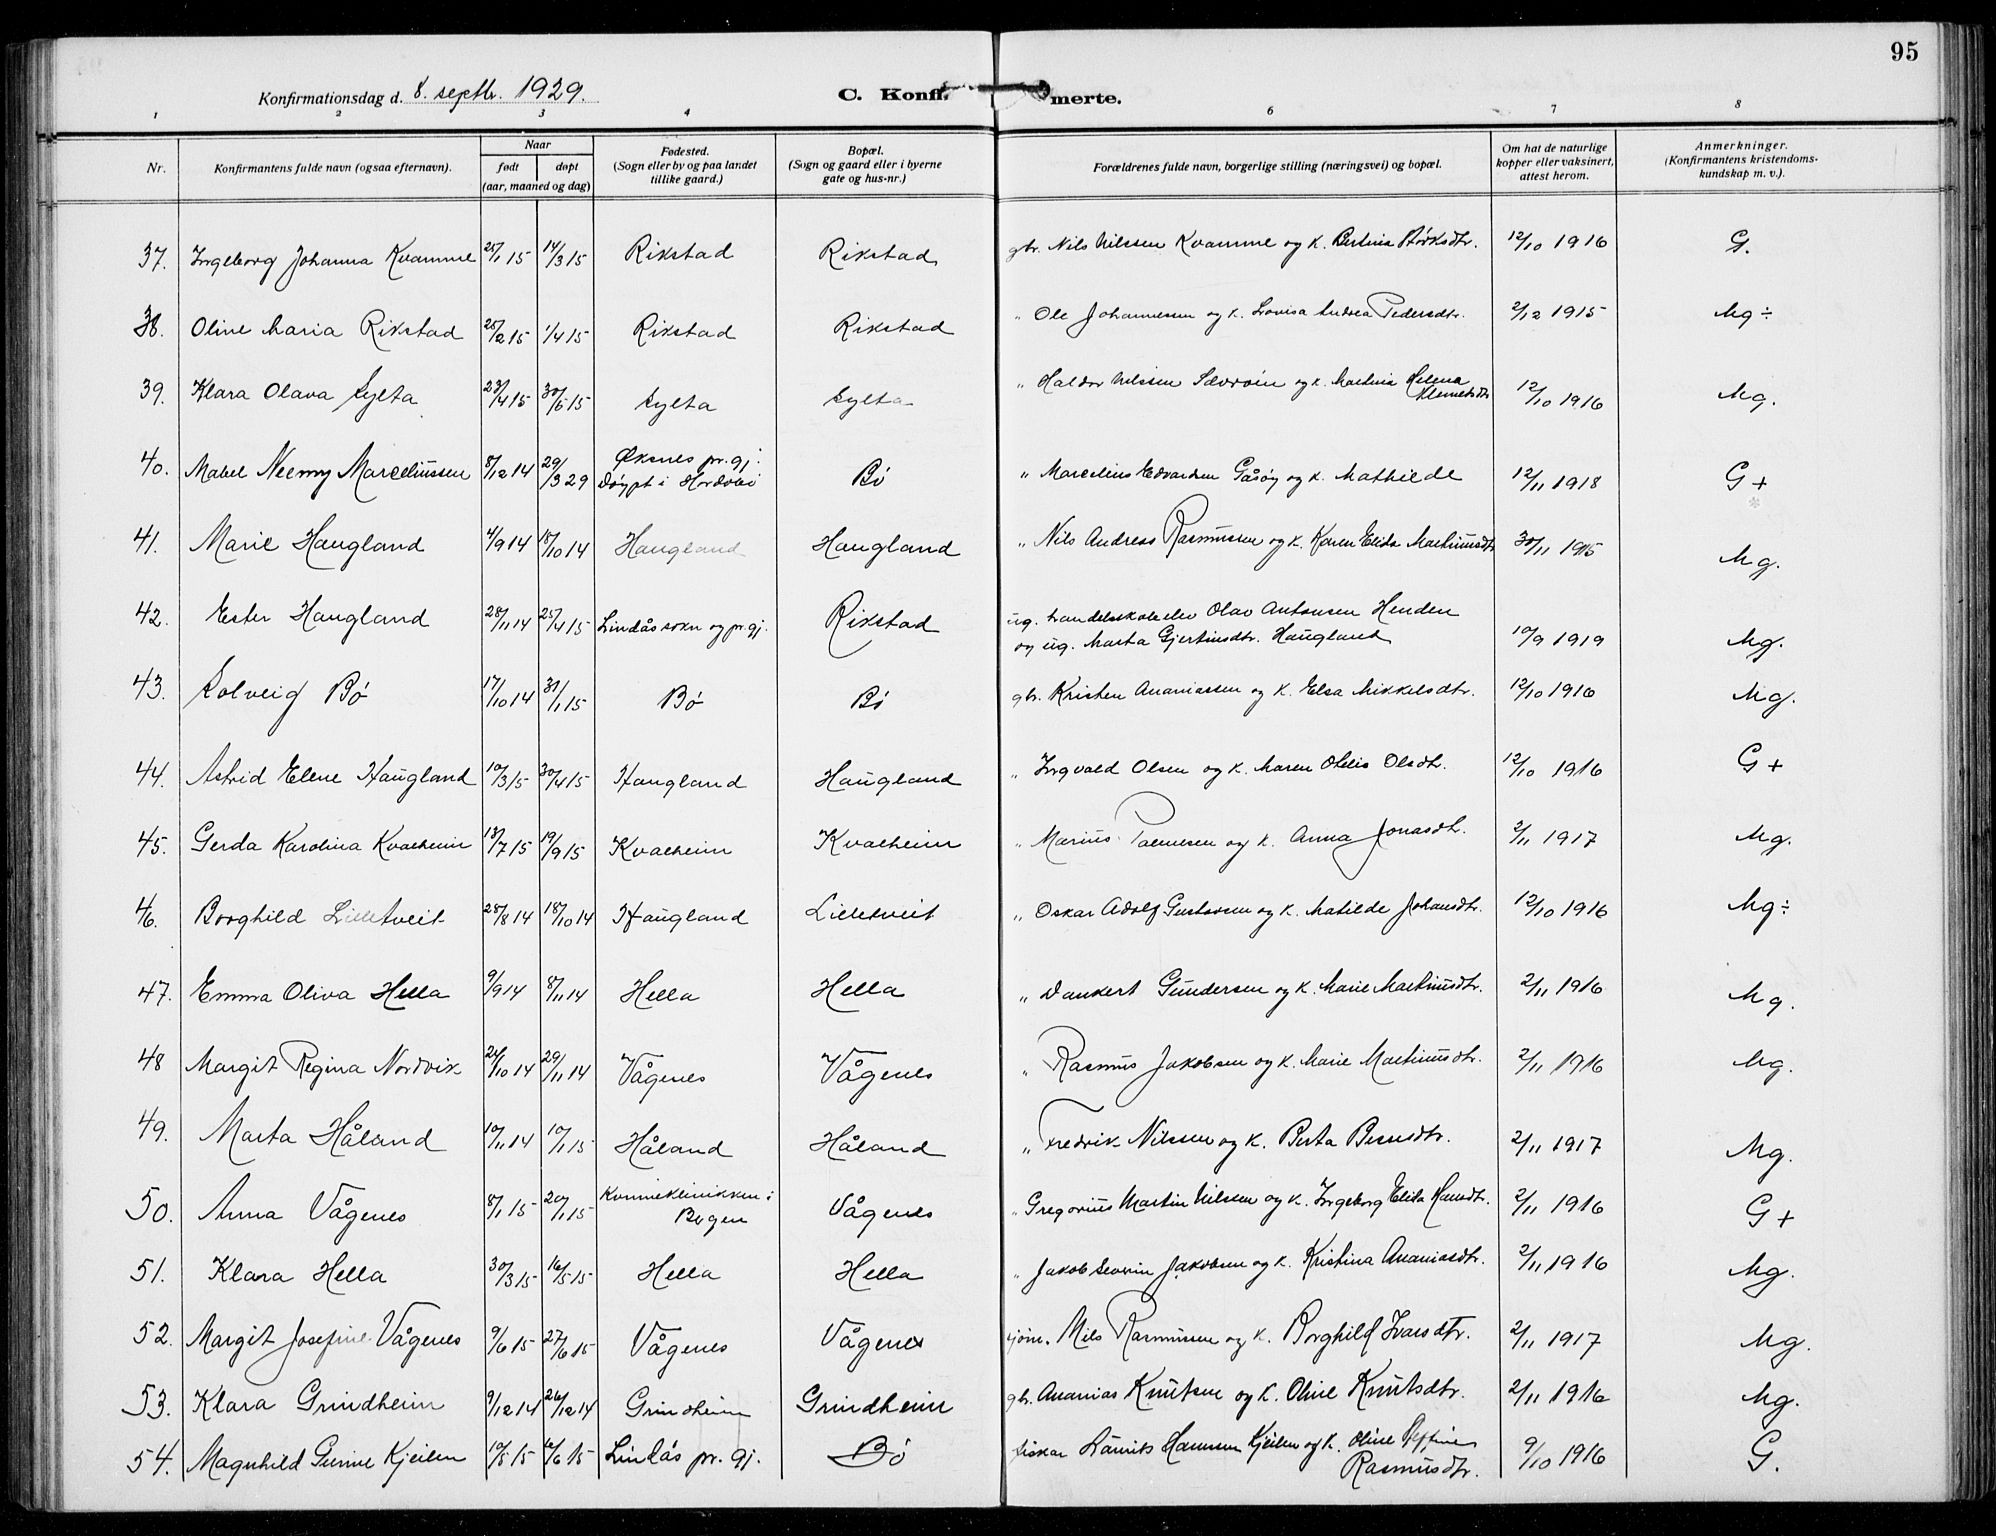 95
Konfirmationsdag d. 8. septbr. 1929.
C. Konfi merte.
1 2 3 4 5 6 7 8
Nr. Konfirmantens fulde navn (ogsaa efternavn). Naar født døpt (aar, maaned og dag) Fødested. (Sogn eller by og paa landet tillike gaard.) Bopæl. (Sogn og gaard eller i byerne gate og hus-nr.) Forældrenes fulde navn, borgerlige stilling (næringsvei) og bopæl. Om hat de naturlige kopper eller vaksinert, attest herom. Anmerkninger. (Konfirmantens kristendoms- kundskap m. v.).
37. Ingeborg Johanna Kvamme 25/1 15 14/3 15 Rikstad Rikstad gbr. Nils Nilssen Kvamme og k. Bertina 12/10 1916 G.
38. Oline Maria Rikstad 25/2 15 1/4 15 Rikstad Rikstad " Ole Johannesen og k. Lovisa Andrea Pedersdtr. 2/12 1915 Mg ÷
39. Klara Olava Sylta 23/4 15 30/5 15 Sylta Sylta " Haldor Nilssen og k. Martina Helena Klemetsdtr 12/10 1916 Mg.
40. Mabel Neemy Marceliussen 8/12 14 29/3 29 Øksnes pr.gj. Døypt i Hordabø Bø " Marcelius Edvardsen Gåsøy og k. Mathilde 12/11 1918 G +
41. Marie Haugland 4/9 14 18/10 14 Haugland Haugland " Nils Andreas Rasmussen og k. Karen Elida Martinusdtr 30/11 1915 Mg.
42. Ester Haugland 28/11 14 25/4 15 Lindås sokn og pr.gj. Rikstad ug. handelsskoleelev Olav Antonsen Henden
og ug. Marta Gjertinsdtr. Haugland 10/9 1919 Mg.
43. Solveig Bø 17/10 14 31/1 15 Bø Bø gbr. Kristen Ananiassen og k. Elsa Mikkelsdtr. 12/10 1916 Mg.
44. Astrid Elene Haugland 10/3 15 30/4 15 Haugland Haugland " Ingvald Olsen og k. Maren Otelie Olsdtr. 12/10 1916 G +
45. Gerda Karolina Kvalheim 13/7 15 19/9 15 Kvalheim Kvalheim " Marius Palmesen og k. Anna Jonasdtr. 2/11 1917 Mg.
46. Borghild Lilletveit 28/8 14 18/10 14 Haugland Lilletveit " Oskar Adolf Gustavsen og k. Matilde Johansdtr. 12/10 1916 Mg ÷
47. Emma Oliva Hella 9/9 14 8/11 14 Hella Hella " Dankert Gundersen og k. Marie Martinusdtr. 2/11 1916 Mg.
48 Margit Regina Nordvik 24/10 14 29/11 14 Vågenes Vågenes " Rasmus Jakobsen og k. Marie Martinusdtr. 2/11 1916 Mg.
49. Marta Håland 10/11 14 10/1 15 Håland Håland " Fredrik Nilssen og k. Berta Berntsdtr. 2/11 1917 Mg.
50. Anna Vågenes 8/1 15 20/1 15 Kvinneklinikken i Bergen Vågenes " Gregorius Martin Nilssen og k. Ingeborg Elida Hansdtr. 2/11 1916 G +
51. Klara Hella 30/3 15 16/5 15 Hella Hella " Jakob Severin Jakobsen og k. Kristina Ananiasdtr. 2/11 1916 Mg.
52. Margit Josefine Vågenes 9/6 15 27/6 15 Vågenes Vågenes sjøm. Nils Rasmussen og k. Borghild Ivarsdtr. 2/11 1917 Mg.
53. Klara Grindheim 9/12 14 26/12 14 Grindheim Grindheim gbr. Ananias Knutsen og k. Oline Knutsdtr. 2/11 1916 Mg.
54. Magnhild Gunne Kjeilen 10/5 15 6/6 15 Lindås pr. gj. Bø fiskar Laurits Hansen Kjeilen og k. Oline Rasmusdtr. 9/10 1916 G.